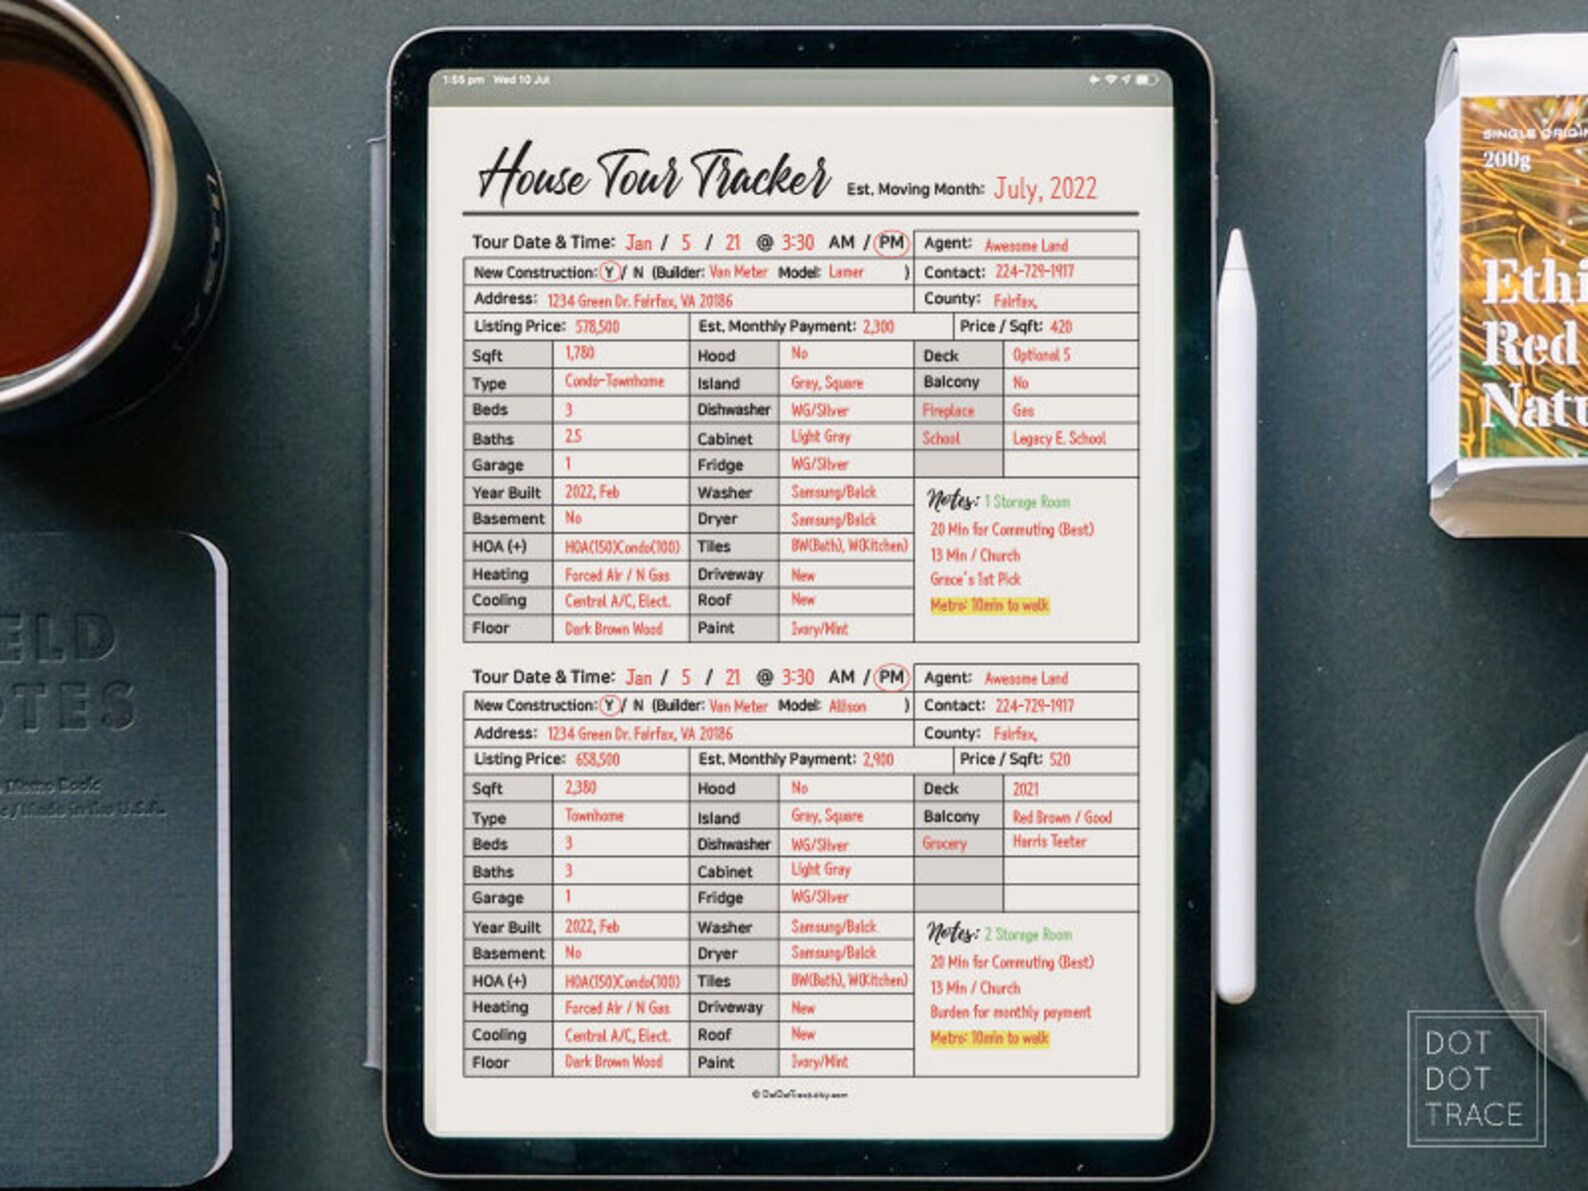 1:55 pm Wed 10 Jul
House Tour Tracker Est. Moving Month: July, 2022
Tour Date & Time: Jan / 5 / 21 @ 3:30 AM / PM Agent: Awesome Land
New Construction: Y / N (Builder: Van Meter Model: Lamer ) Contact: 224-729-1917
Address: 1234 Green Dr. Fairfax, VA 20186 County: Fairfax,
Listing Price: 578,500 Est. Monthly Payment: 2,300 Price / Sqft: 420
Sqft 1,780 Hood No Deck Optional 5
Type Condo-Townhome Island Gray, Square Balcony No
Beds 3 Dishwasher WG/Silver Fireplace Gas
Baths 2.5 Cabinet Light Gray School Legacy E. School
Garage 1 Fridge WG/Silver
Year Built 2022, Feb Washer Samsung/Balck Notes: 1 Storage Room
Basement No Dryer Samsung/Balck 20 Min for Commuting (Best)
HOA (+) HOA(150)Condo(100) Tiles BW(Bath), W(Kitchen) 13 Min / Church
Heating Forced Air / N Gas Driveway New Grace's 1st Pick
Cooling Central A/C, Elect. Roof New Metro: 10min to walk
Floor Dark Brown Wood Paint Ivory/Mint
Tour Date & Time: Jan / 5 / 21 @ 3:30 AM / PM Agent: Awesome Land
New Construction: Y / N (Builder: Van Meter Model: Allison ) Contact: 224-729-1917
Address: 1234 Green Dr. Fairfax, VA 20186 County: Fairfax,
Listing Price: 658,500 Est. Monthly Payment: 2,900 Price / Sqft: 520
Sqft 2,380 Hood No Deck 2021
Type Townhome Island Gray, Square Balcony Red Brown / Good
Beds 3 Dishwasher WG/Silver Grocery Harris Teeter
Baths 3 Cabinet Light Gray
Garage 1 Fridge WG/Silver
Year Built 2022, Feb Washer Samsung/Balck Notes: 2 Storage Room
Basement No Dryer Samsung/Balck 20 Min for Commuting (Best)
HOA (+) HOA(150)Condo(100) Tiles BW(Bath), W(Kitchen) 13 Min / Church
Heating Forced Air / N Gas Driveway New Burden for monthly payment
Cooling Central A/C, Elect. Roof New Metro: 10min to walk
Floor Dark Brown Wood Paint Ivory/Mint
SINGLE ORIGIN
200g
Ethi
Red
Natu
ELD
OTES
Memo Book
/ Made in the U.S.A.
DOT
DOT
TRACE